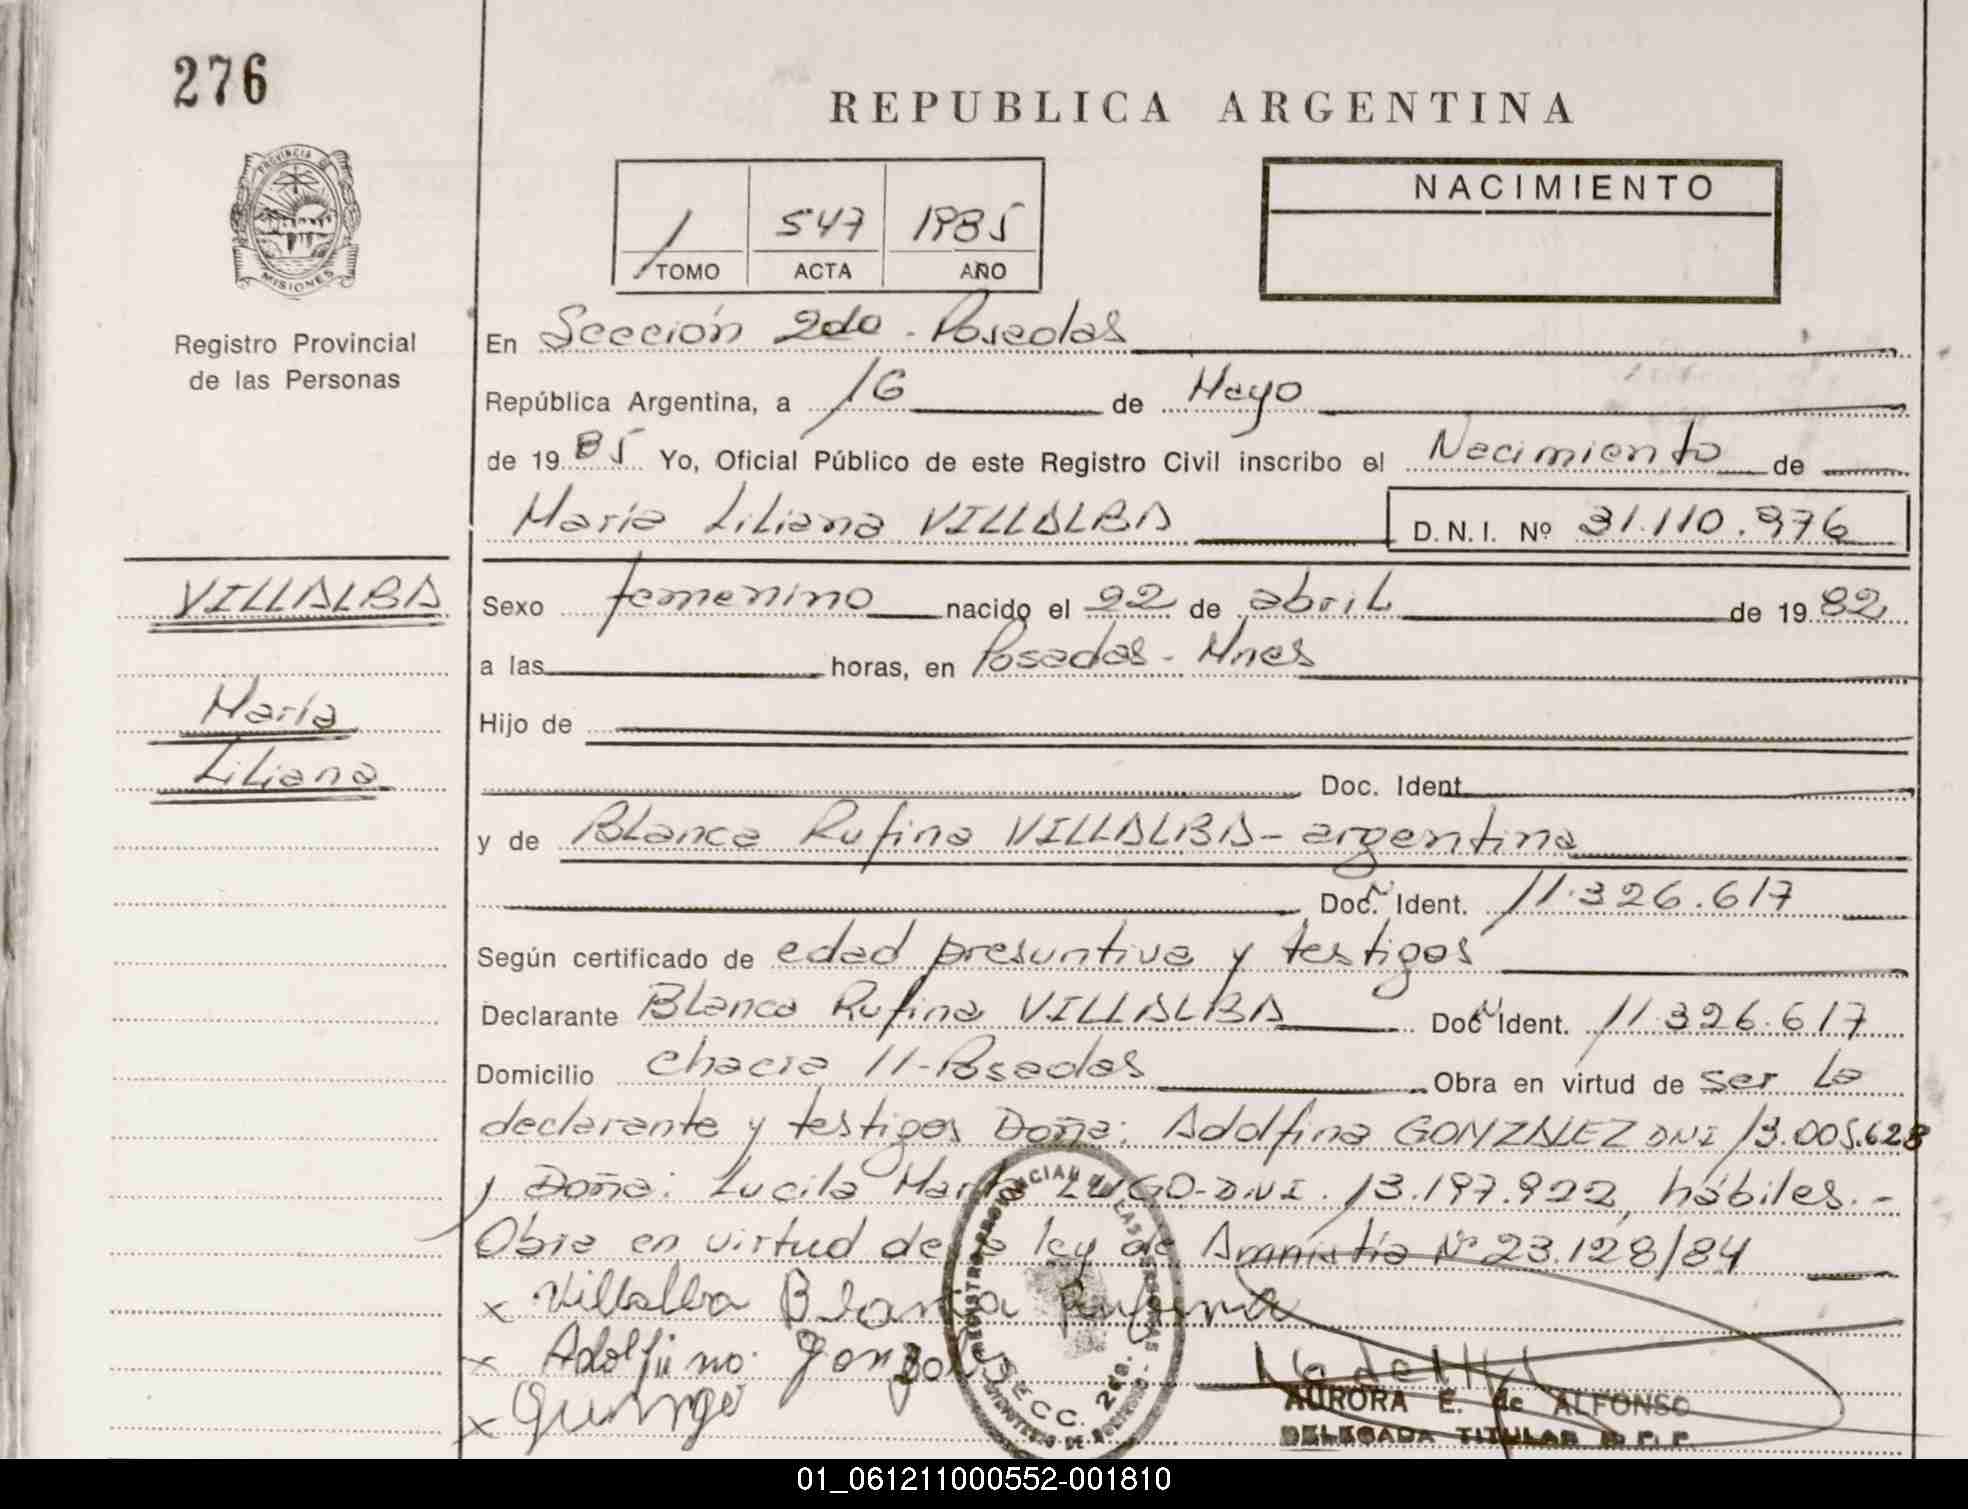 276
REPUBLICA ARGENTINA
PROVINCIA DE
MISIONES
Registro Provincial
de las Personas
1 547 1985
TOMO ACTA AÑO
NACIMIENTO
En Sección 2da - Posadas
República Argentina, a 16 de Mayo
de 19 85 Yo, Oficial Público de este Registro Civil inscribo el Nacimiento de
María Liliana VILLALBA D.N.I. Nº 31.110.976
VILLALBA
María
Liliana
Sexo femenino nacido el 22 de abril de 19 82
a las horas, en Posadas - Mnes
Hijo de
Doc. Ident.
y de Blanca Rufina VILLALBA - argentina
Doc. Ident. 11.326.617
Según certificado de edad presuntiva y testigos
Declarante Blanca Rufina VILLALBA Doc. Ident. 11.326.617
Domicilio chacra 11 - Posadas Obra en virtud de ser la
declarante y testigos Doña: Adolfina GONZALEZ DNI 13.005.628
, Doña: Lucila Marta LUGO - D.N.I. 13.197.922, hábiles. -
Obra en virtud de la ley de Amnistia Nº 23.128/84
x Villalba Blanca Rufina
x Adolfina
x
SECC. 2da.
AURORA E. de ALFONSO
DELEGADA TITULAR
01_061211000552-001810